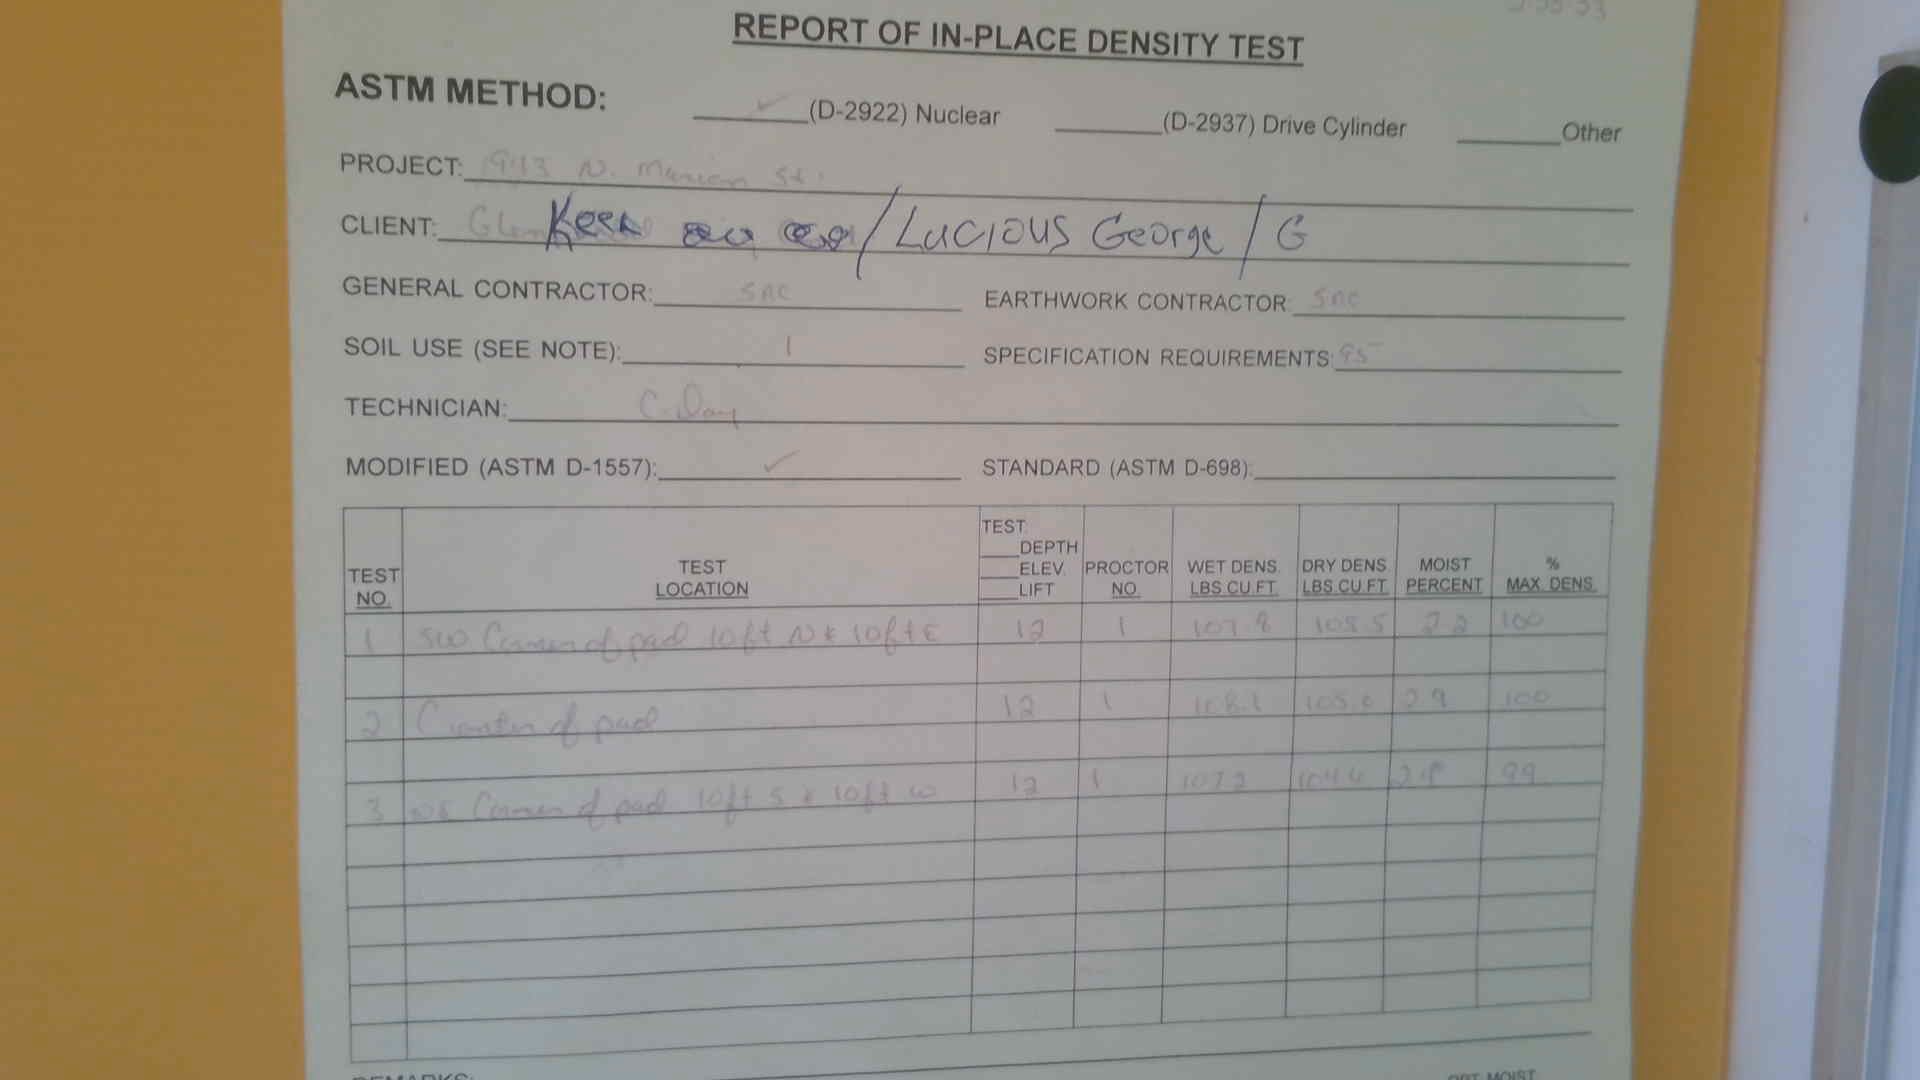 REPORT OF IN-PLACE DENSITY TEST
ASTM METHOD: ✓ (D-2922) Nuclear (D-2937) Drive Cylinder Other
PROJECT: N. Marion St.
CLIENT: / Lucious George / G
GENERAL CONTRACTOR: SAC EARTHWORK CONTRACTOR: SAC
SOIL USE (SEE NOTE): 1 SPECIFICATION REQUIREMENTS: 95
TECHNICIAN: C. Day
MODIFIED (ASTM D-1557): ✓ STANDARD (ASTM D-698):
TEST NO. TEST LOCATION TEST: DEPTH ELEV. LIFT PROCTOR NO. WET DENS. LBS.CU.FT. DRY DENS. LBS.CU.FT. MOIST PERCENT % MAX. DENS.
1 SW Corner of pad 10ft N & 10ft E 12 1 107.8 105.5 2.2 100
2 Center of pad 12 1 108.1 2.9 100
3 NE Corner of pad 10ft S & 10ft W 12 1 107.2 99
REMARKS:
OPT. MOIST